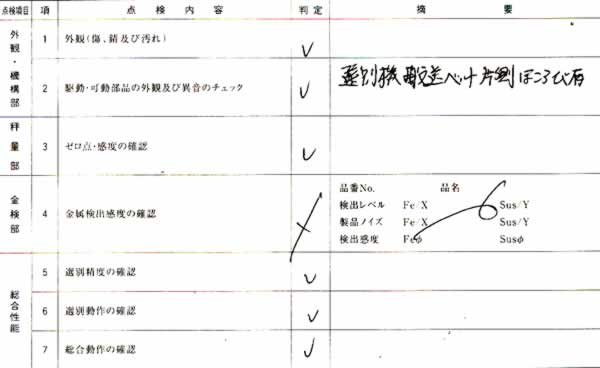 点検項目 項 点検内容 判定 摘要
外観・機構部 1 外観(傷、錆及び汚れ) ✓
2 駆動・可動部品の外観及び異音のチェック ✓ 選別機 搬送ベルト片側ほころび有
秤量部 3 ゼロ点・感度の確認 ✓
金検部 4 金属検出感度の確認
品番No. 品名
検出レベル Fe/X Sus/Y
製品ノイズ Fe/X Sus/Y
検出感度 Feφ Susφ
総合性能 5 選別精度の確認 ✓
6 選別動作の確認 ✓
7 総合動作の確認 ✓